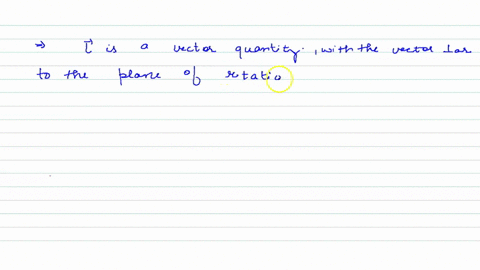 → L⃗ is a vector quantity, with the vector ⊥ar
to the plane of rotatio